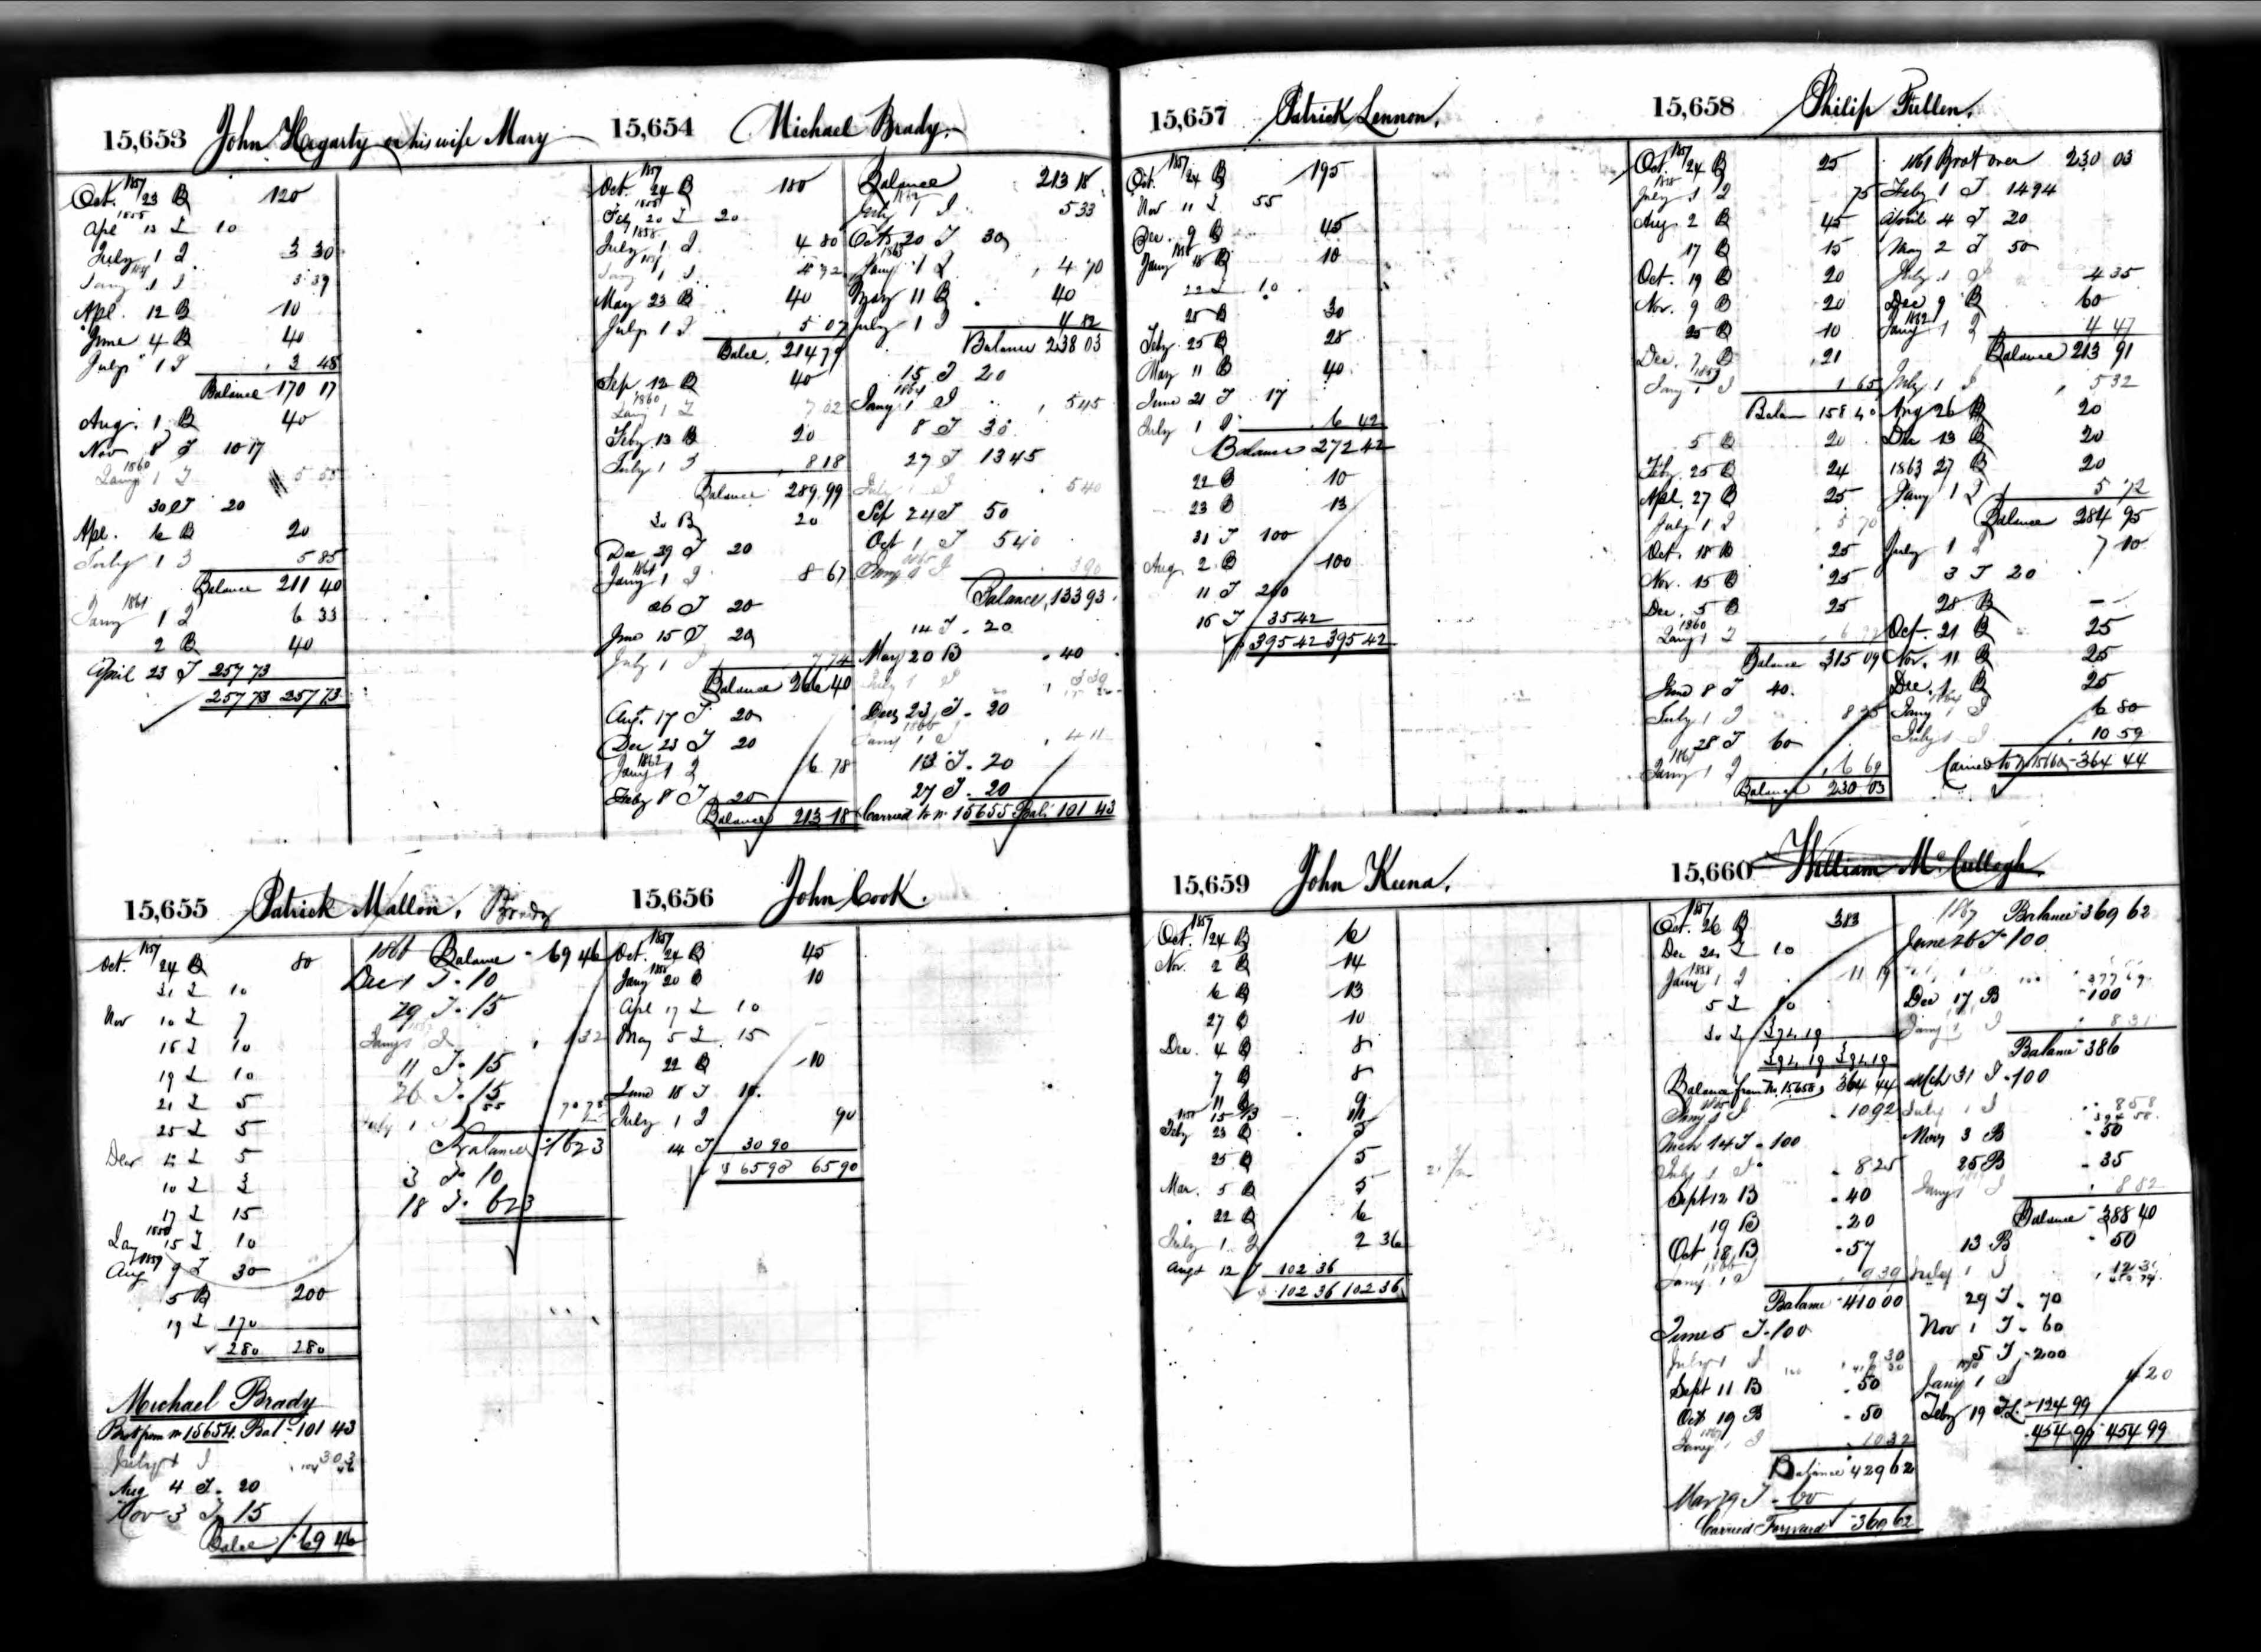 15,653 John Hegarty or his wife Mary
1857
Oct. 23 B 120
1858
Apl 13 T 10
July 1 I 3 30
Jany 1 I 3 39
Apl. 12 B 10
June 4 B 40
July 1 I 3 48
Balance 170 17
Aug. 1 B 40
Nov 8 T 10 17
1860
Jany 1 I 5 55
30 T 20
Apl. 6 B 20
July 1 I 5 85
Balance 211 40
1861
Jany 1 I 6 33
2 B 40
April 23 T 257 73
257 73 257 73
15,654 Michael Brady
1857
Oct. 24 B 180
1858
Feby 20 T 20
1858
July 1 I 4 80
Jany 1 I 4 92
May 23 B 40
July 1 I 5 07
Balce. 214 79
Sep 12 B 40
1860
Jany 1 I 7 02
Feby 13 B 20
July 1 I 8 18
Balance 289.99
30 B 20
Dec 29 T 20
1861
Jany 1 I 8 67
26 T 20
June 15 T 20
July 1 I 7 74
Balance 266 40
Aug. 17 T 20
Dec 23 T 20
1862
Jany 1 I 6 78
Feby 8 T 20
Balance 213 18
Balance 213 18
July 1 I 5 33
Oct 20 T 30
1863
Jany 1 I 4 70
May 11 B 40
July 1 I 4 82
Balance 238 03
15 T 20
1864
Jany 1 I 5 45
8 T 30
27 T 13 45
July 1 I 5 40
Sep 24 T 50
Oct 1 T 5 40
1865
Jany 1 I 3 90
Balance, 133 93
14 T 20
May 20 B 40
July 1 I
Dec 23 T 20
1866
Jany 1 I 4 11
13 T 20
27 T 20
Carried to No 15655 Bal. 101 43
15,655 Patrick Mallon. Brady
1857
Oct. 24 B 80
31 T 10
Nov 10 T 7
16 T 10
19 T 10
21 T 5
25 T 5
Dec 12 T 5
10 T 3
17 T 15
1858
Jan 15 T 10
1859
Aug 9 T 30
5 B 200
19 T 170
280 280
Michael Brady
Brot from No 15654. Bal 101 43
July 1 I 3 03
Aug 4 T 20
Nov 3 T 15
Balce 69 46
1866 Balance 69 46
Dec 1 T 10
29 T 15
Jany 1 I 1 32
11 T 15
26 T 15
July 1 I 55
Balance 16 23
3 T 10
18 T 6 23
15,656 John Cook.
1857
Oct. 24 B 45
1858
Jany 20 B 10
Apl 17 T 10
May 5 T 15
22 B 10
June 18 T 10
July 1 I 90
14 T 30 90
$ 65 90 65 90
15,657 Patrick Lennon.
1857
Oct. 24 B 195
Nov 11 T 55
Dec. 9 B 45
1858
Jany 18 B 10
22 T 10
25 B 30
Feby. 25 B 28
May 11 B 40
June 21 T 17
July 1 I 6 42
Balance 272 42
22 B 10
23 B 13
31 T 100
Aug. 2 B 100
11 T 260
16 T 35 42
395 42 395 42
15,658 Philip Fullen.
1857
Oct. 24 B 25
1858
July 1 I 75
Aug. 2 B 45
17 B 15
Oct. 19 B 20
Nov. 9 B 20
25 B 10
Dec. 7 B 21
1859
Jany 1 I 1 65
Balan 158 40
5 B 20
Feby. 25 B 24
Apl. 27 B 25
July 1 I 5 70
Oct. 18 B 25
Nov. 15 B 25
Dec. 5 B 25
1860
Jany 1 I 6 99
Balance 315 09
June 8 T 40
July 1 I 8 25
28 T 60
1861
Jany 1 I 6 69
Balance 230 03
1861 Brot over 230 03
Feby 1 T 14 94
April 4 T 20
May 2 T 50
July 1 I 4 35
Dec 9 B 60
1862
Jany 1 I 4 47
Balance 213 91
July 1 I 5 32
Aug 26 B 20
Dec 13 B 20
1863 27 B 20
Jany 1 I 5 72
Balance 284 95
July 1 I 7 10
3 T 20
28 B —
Oct. 21 B 25
Nov. 11 B 25
Dec. 1 B 25
1864
Jany 1 I 6 80
July 1 I 10 59
Carried to No 15660 364 44
15,659 John Keena.
1857
Oct. 24 B 6
Nov. 2 B 14
6 B 13
27 B 10
Dec. 4 B 8
7 B 8
11 B 9
1858 15 B 11
Feby 23 B 5
25 B 5
Mar. 5 B 5
22 B 6
July 1 I 2 36
Augt 12 T 102 36
102 36 102 36
15,660 William McCullogh
1857
Oct. 26 B 383
Dec 24 T 10
1858
Jany 1 I 11 19
5 T 10
392.19 392.19
Balance from No. 15658 364 44
1865
Jany 1 I 10 92
Mch 14 T 100
July 1 I 8 25
Sept 12 B 40
19 B 20
Oct 18 B 57
1866
Jany 1 I 9 39
Balance 410 00
June 5 T 100
July 1 I 9 30
Sept 11 B 50
Oct 19 B 50
1867
Jany 1 I 10 32
Balance 429 62
Mar 29 T 60
Carried Forward 369 62
1867 Balance 369 62
June 26 T 100
Dec 17 B 100
Jany 1 I 8 31
Balance 386
Mch 31 T 100
July 1 I 8 58
Nov 3 B 50
25 B 35
Jany 1 I 8 82
Balance 388 40
13 B 50
July 1 I
29 T 70
Nov 1 T 60
5 T 200
1870
Jany 1 I 4 20
Feby 19 T 124 99
454 99 454 99